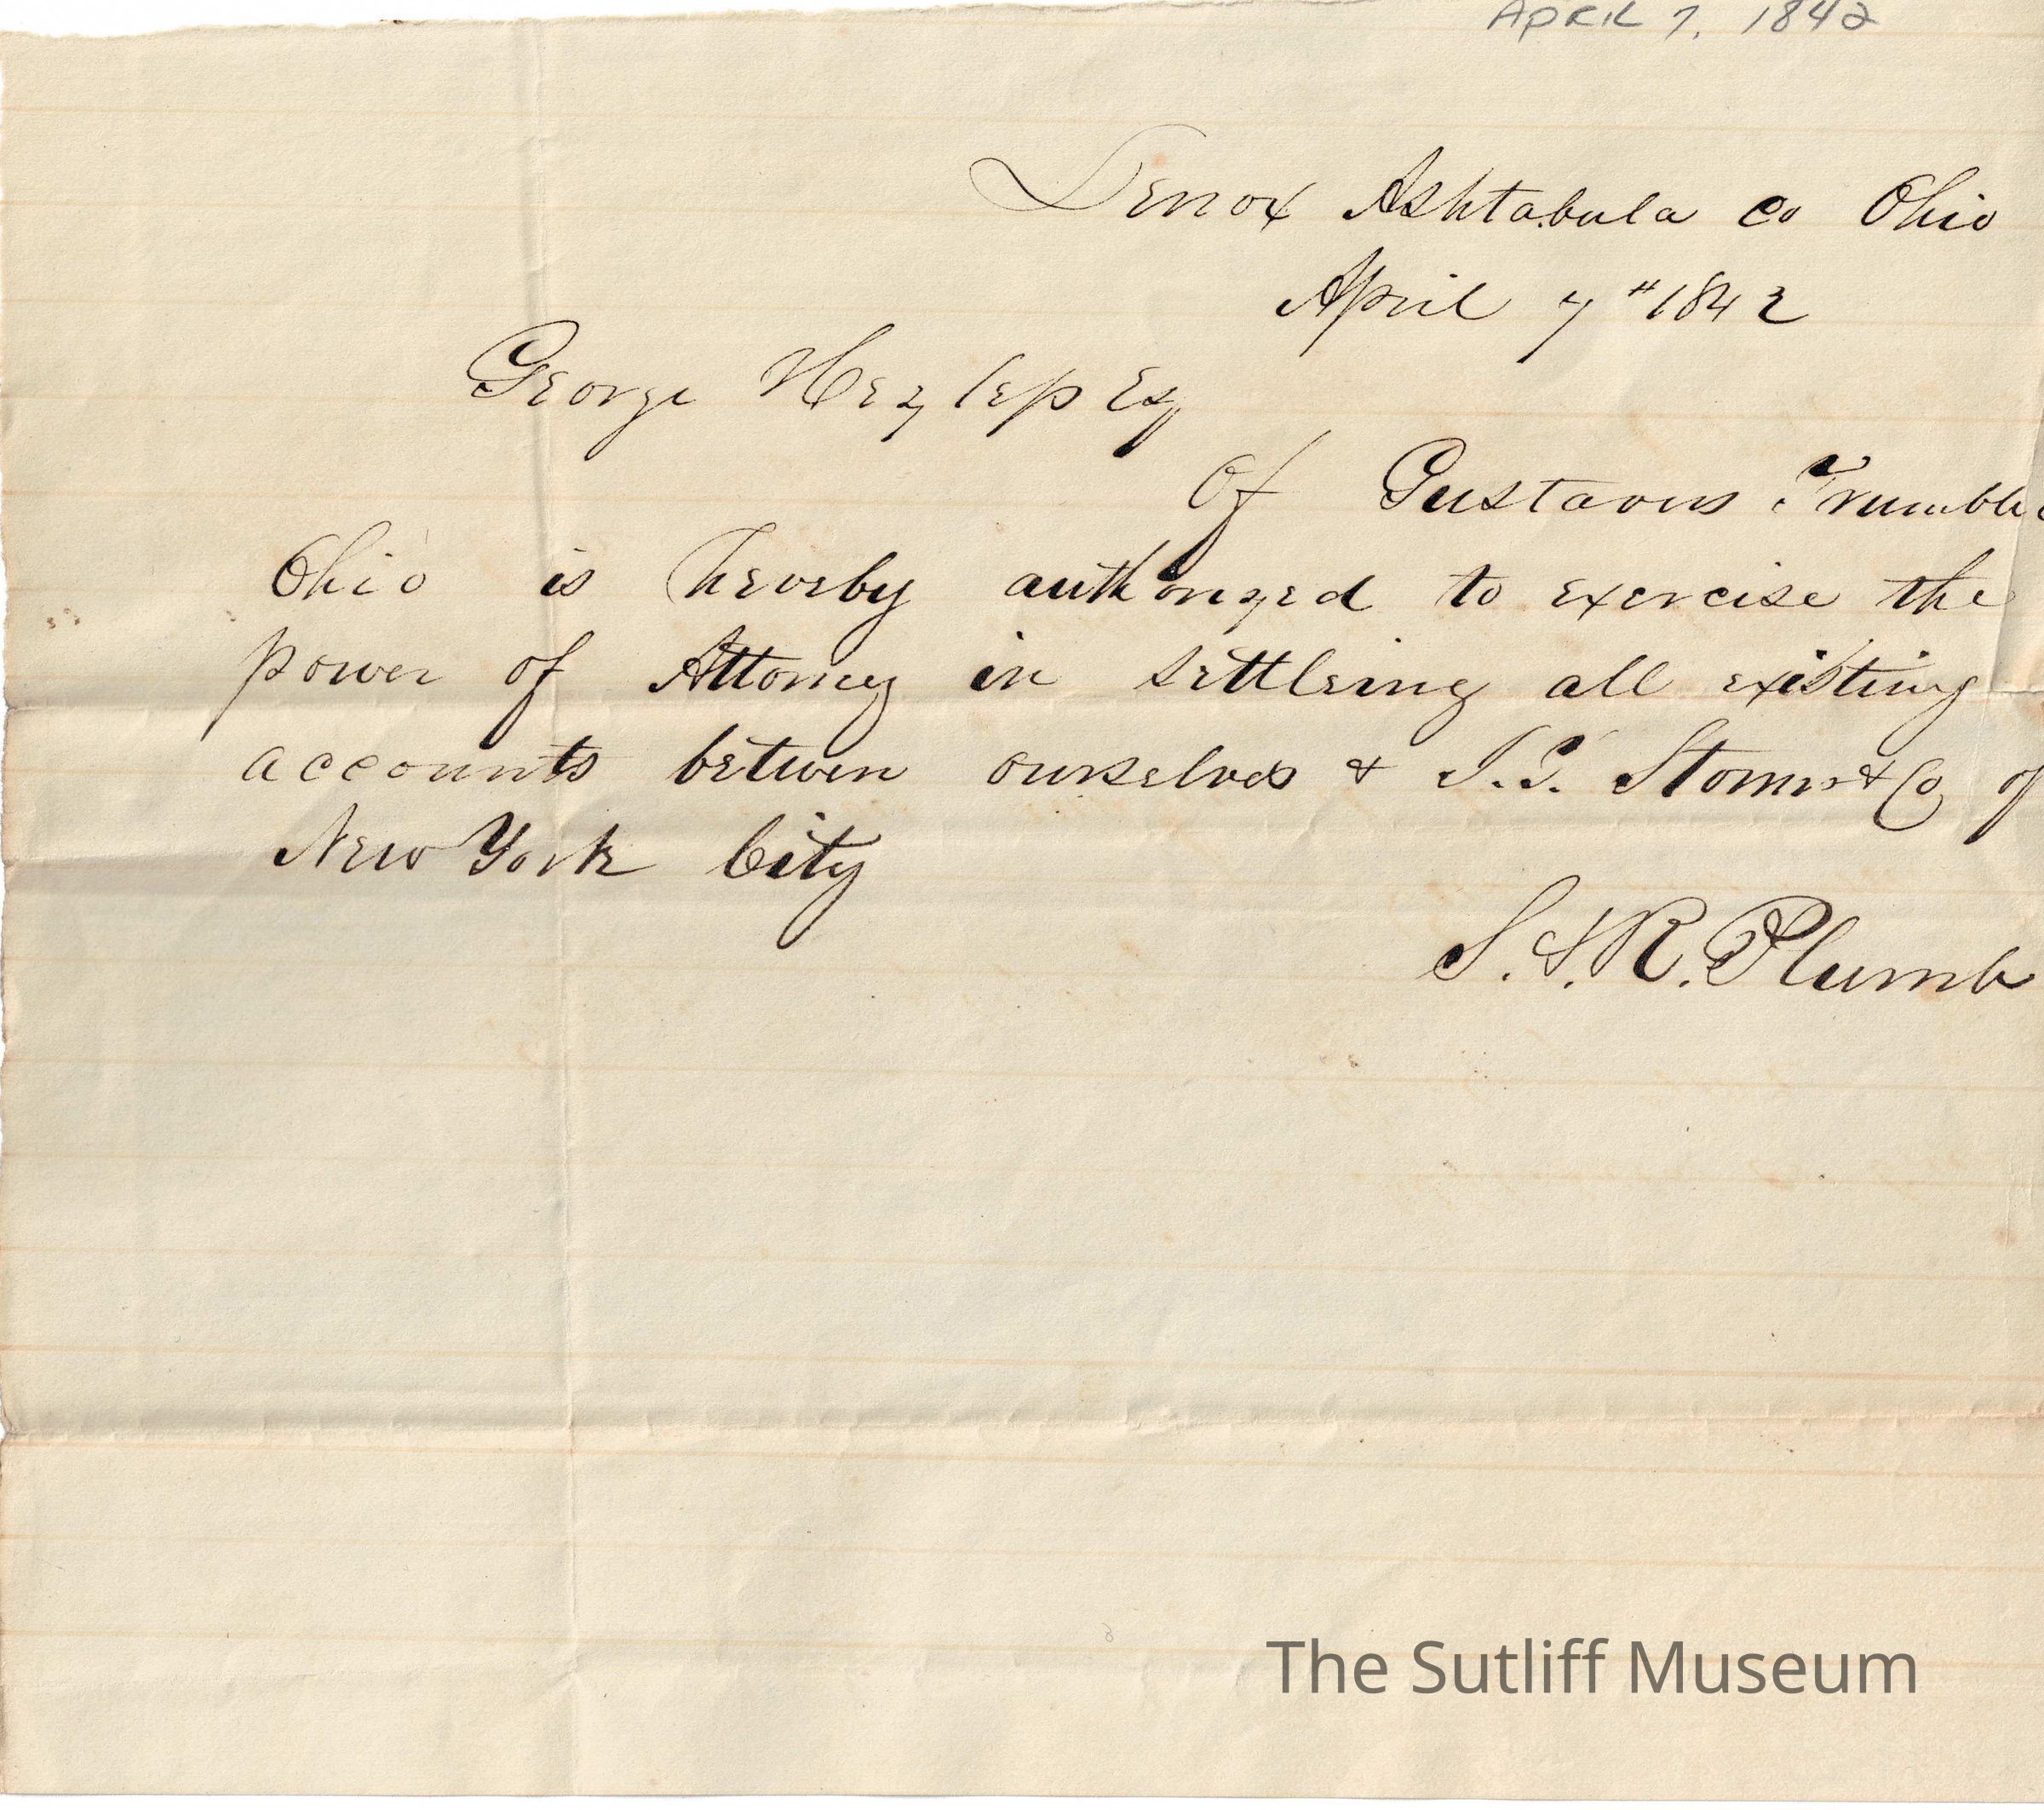 APRIL 7, 1842
Lenox Ashtabula co Ohio
April 7th 1842
George Hezlep Esq
Of Gustavus Trumble
Ohio is hereby authorized to exercise the
power of Attorney in settleing all existing
accounts between ourselves & & Co of
New York City
S. S. R. Plumb
The Sutliff Museum